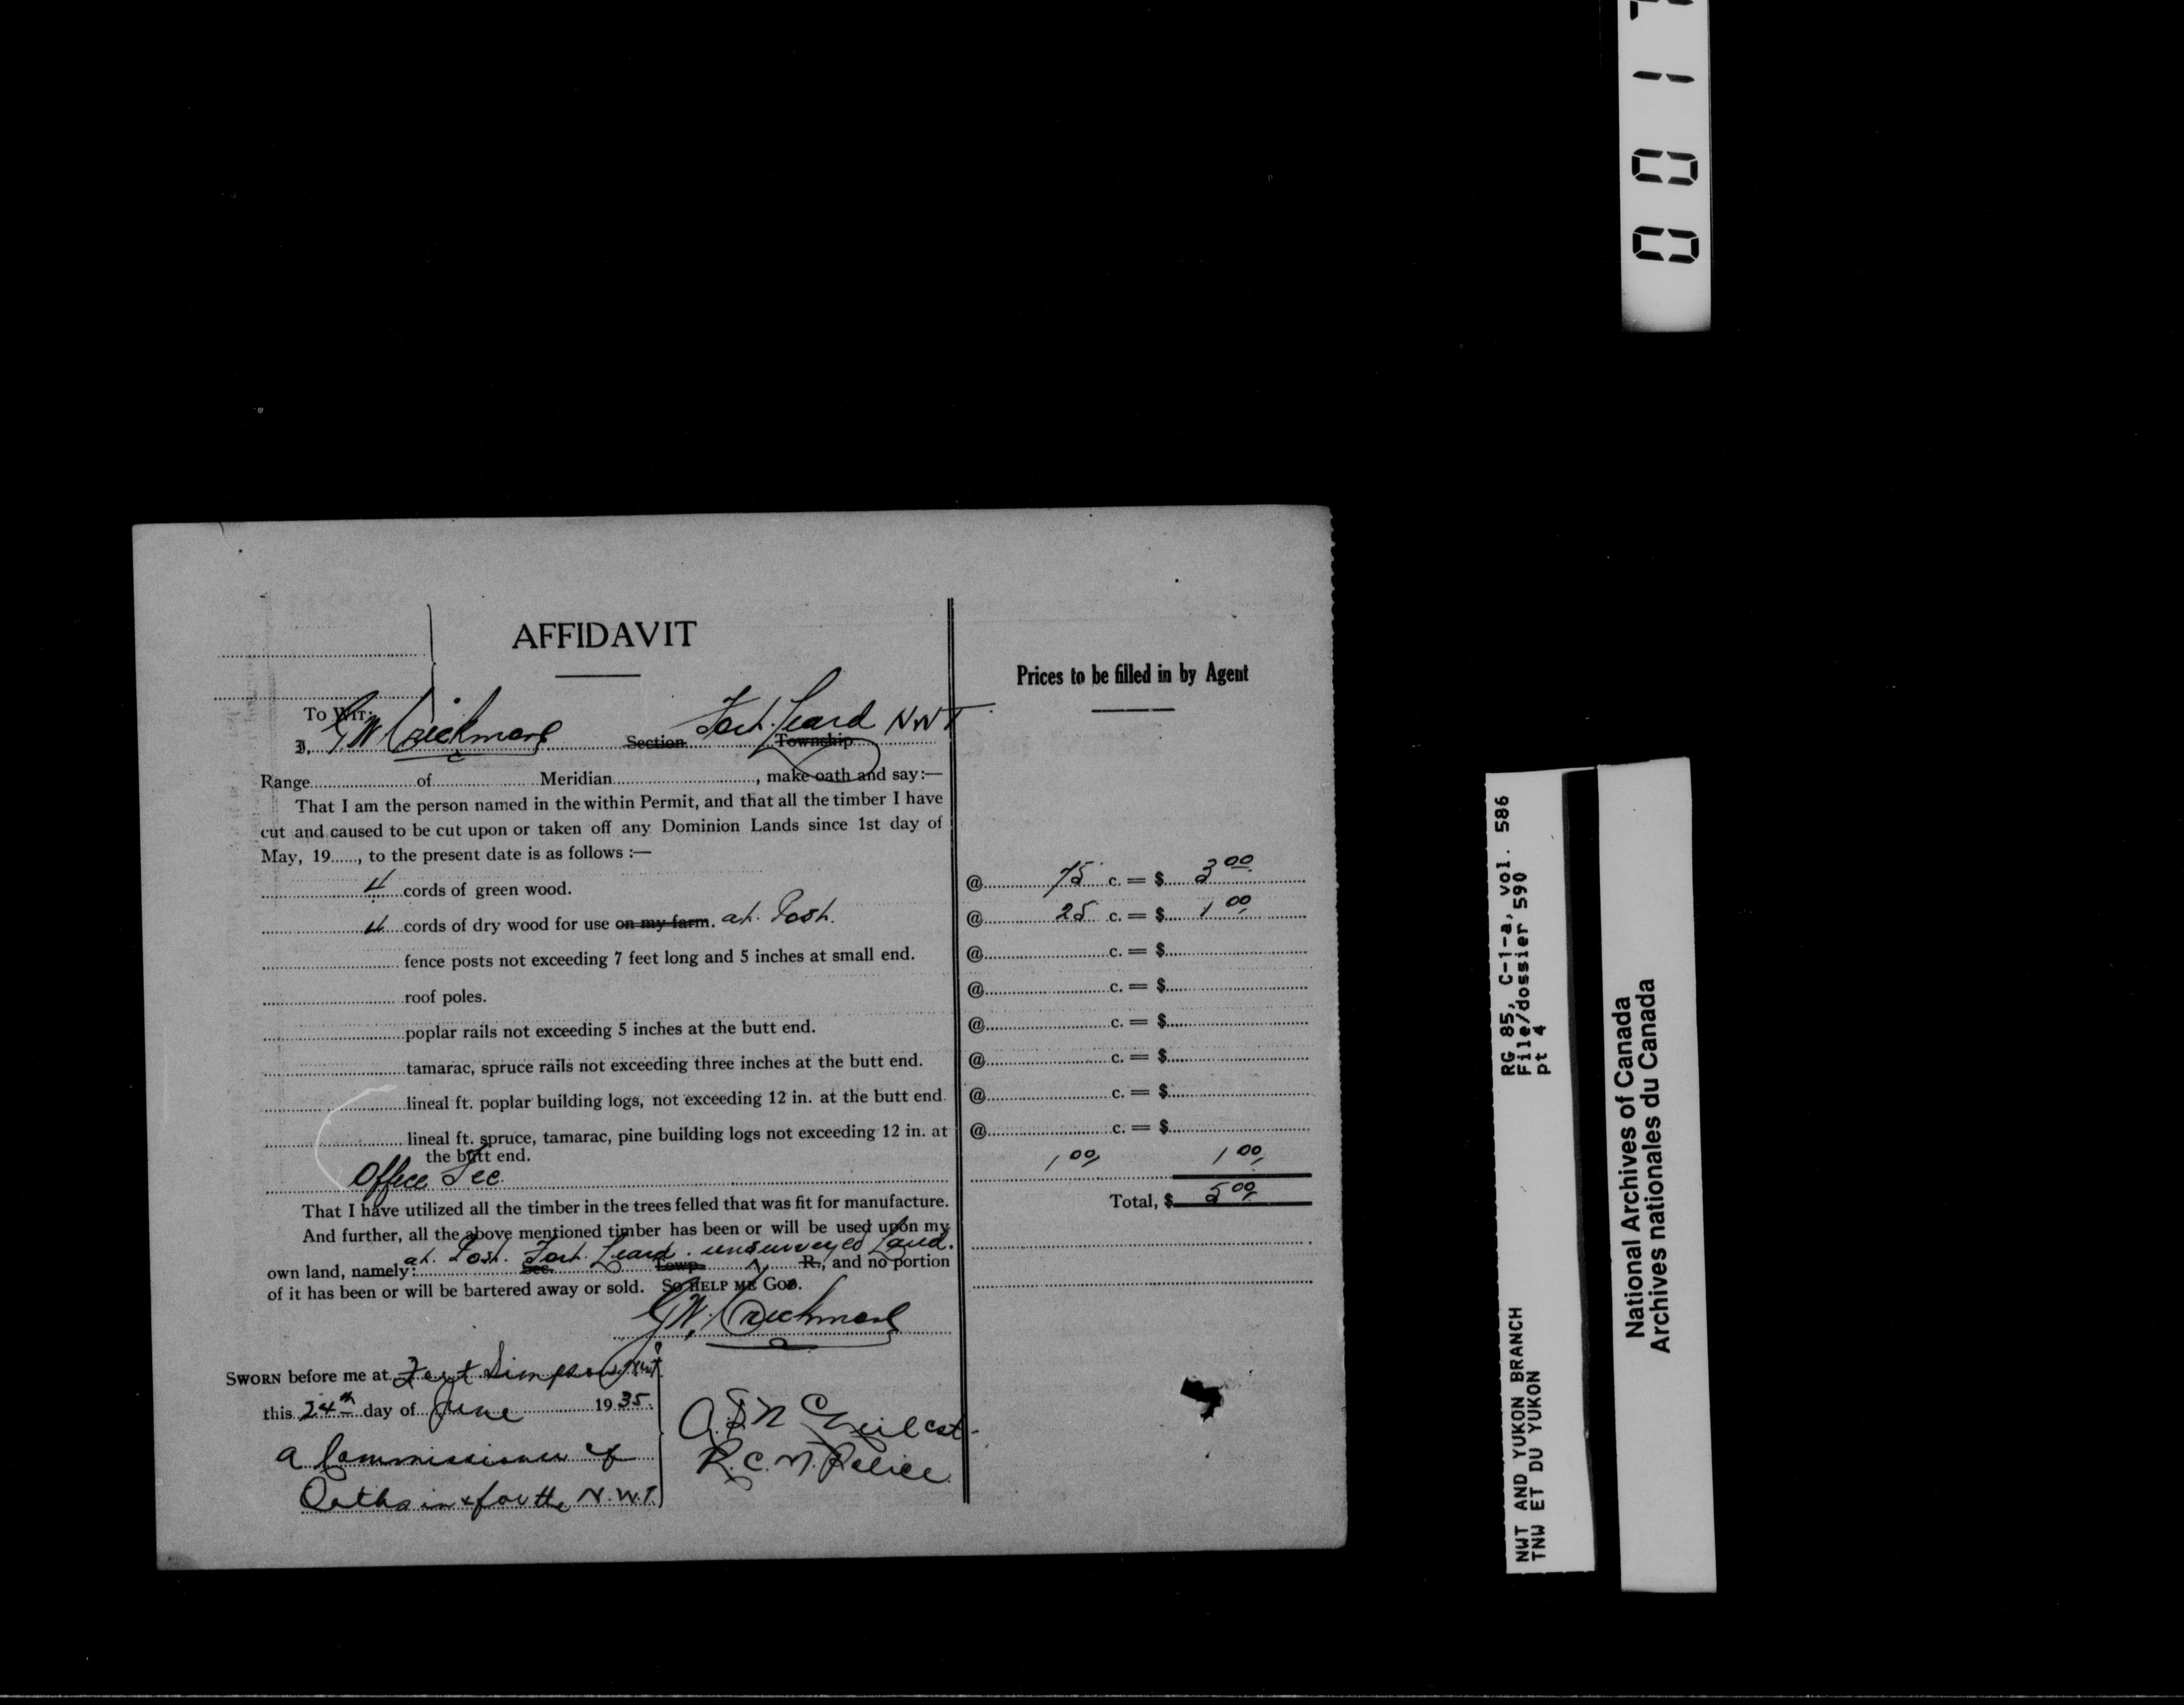 0017
AFFIDAVIT
Prices to be filled in by Agent
To Wit:
I, G W Crickmore Section Fort Leard NWT Township
Range of Meridian, make oath and say:—
That I am the person named in the within Permit, and that all the timber I have
cut and caused to be cut upon or taken off any Dominion Lands since 1st day of
May, 19......, to the present date is as follows :—
4 cords of green wood. @ 75 c. = $ 3 00
4 cords of dry wood for use on my farm. at. Post. @ 25 c. = $ 1 00
fence posts not exceeding 7 feet long and 5 inches at small end. @ c. = $
roof poles. @ c. = $
poplar rails not exceeding 5 inches at the butt end. @ c. = $
tamarac, spruce rails not exceeding three inches at the butt end. @ c. = $
lineal ft. poplar building logs, not exceeding 12 in. at the butt end. @ c. = $
lineal ft. spruce, tamarac, pine building logs not exceeding 12 in. at @ c. = $
the butt end.
Office Fee 1 00 1 00
That I have utilized all the timber in the trees felled that was fit for manufacture. Total, $ 5 00
And further, all the above mentioned timber has been or will be used upon my
at. Post. Fort. Leard. unsurveyed Land.
own land, namely: Sec. Towp. R., and no portion
of it has been or will be bartered away or sold. So help me God.
G W. Crickmore
Sworn before me at Fort Simpson, NWT
this 24th day of June 1935.
a Commissioner of
Oaths in & for the N.W.T.
R.C.M. Police
RG 85, C-1-a, vol. 586
File/dossier 590
pt 4
NWT AND YUKON BRANCH
TNW ET DU YUKON
National Archives of Canada
Archives nationales du Canada